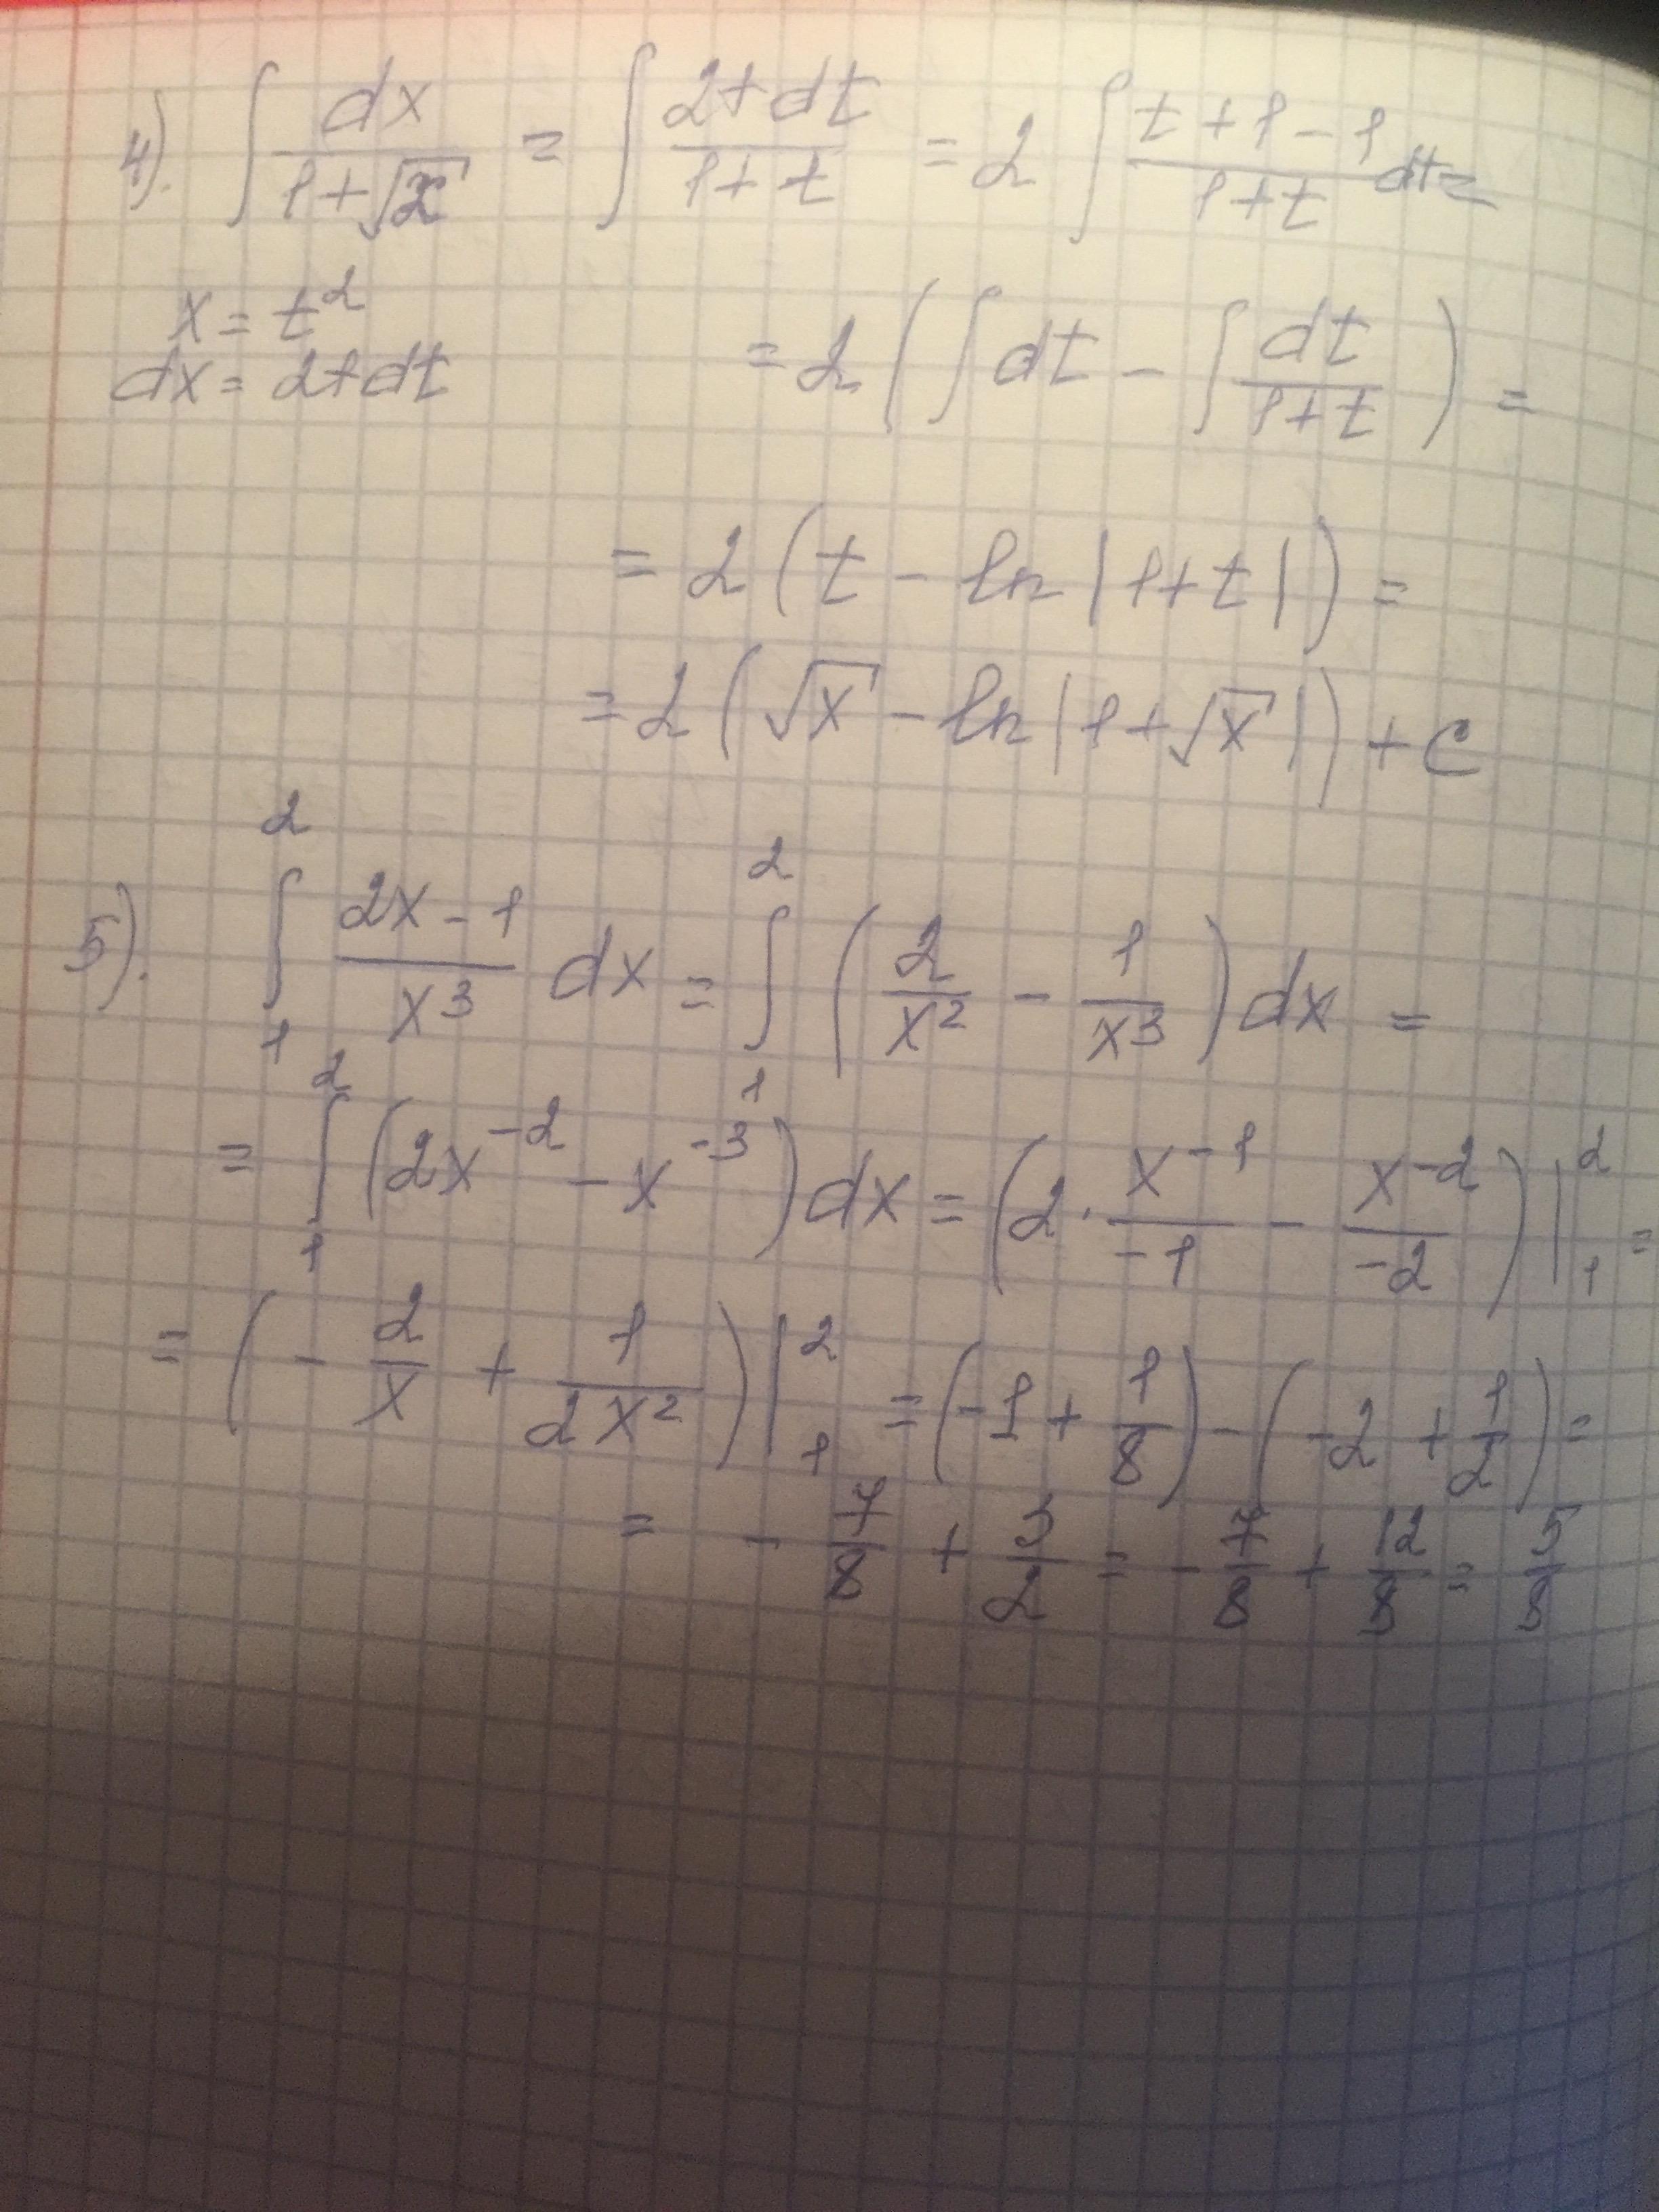 4). ∫ dx/(1+√x) = ∫ 2t dt/(1+t) = 2 ∫ (t+1-1)/(1+t) dt =
x = t²
dx = 2t dt
= 2 ( ∫ dt - ∫ dt/(1+t) ) =
= 2 ( t - ln |1+t| ) =
= 2 ( √x - ln |1+√x| ) + C
5). ∫₁² (2x-1)/x³ dx = ∫₁² ( 2/x² - 1/x³ ) dx =
= ∫₁² ( 2x⁻² - x⁻³ ) dx = ( 2 · x⁻¹/-1 - x⁻²/-2 ) |₁² =
= ( - 2/x + 1/(2x²) ) |₁² = ( -1 + 1/8 ) - ( -2 + 1/2 ) =
= - 7/8 + 3/2 = - 7/8 + 12/8 = 5/8